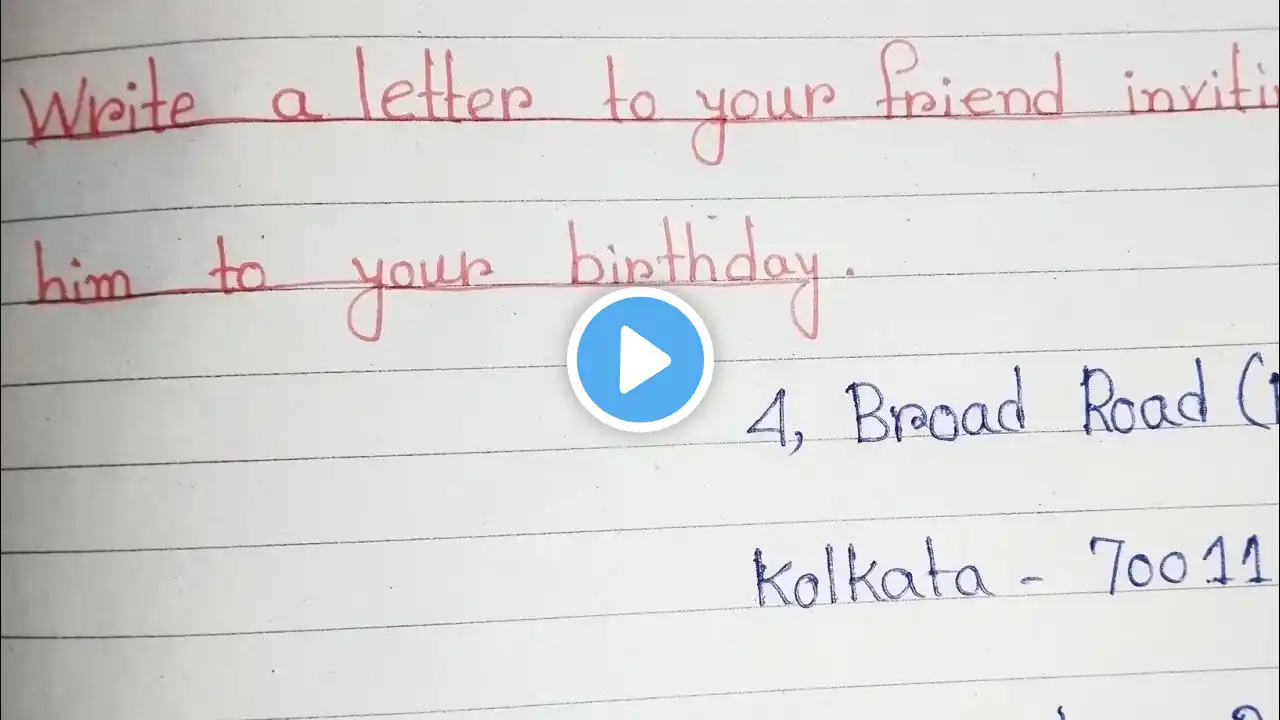 Write a letter to your friend
him to your birthday.
4, Broad Road
Kolkata - 70011